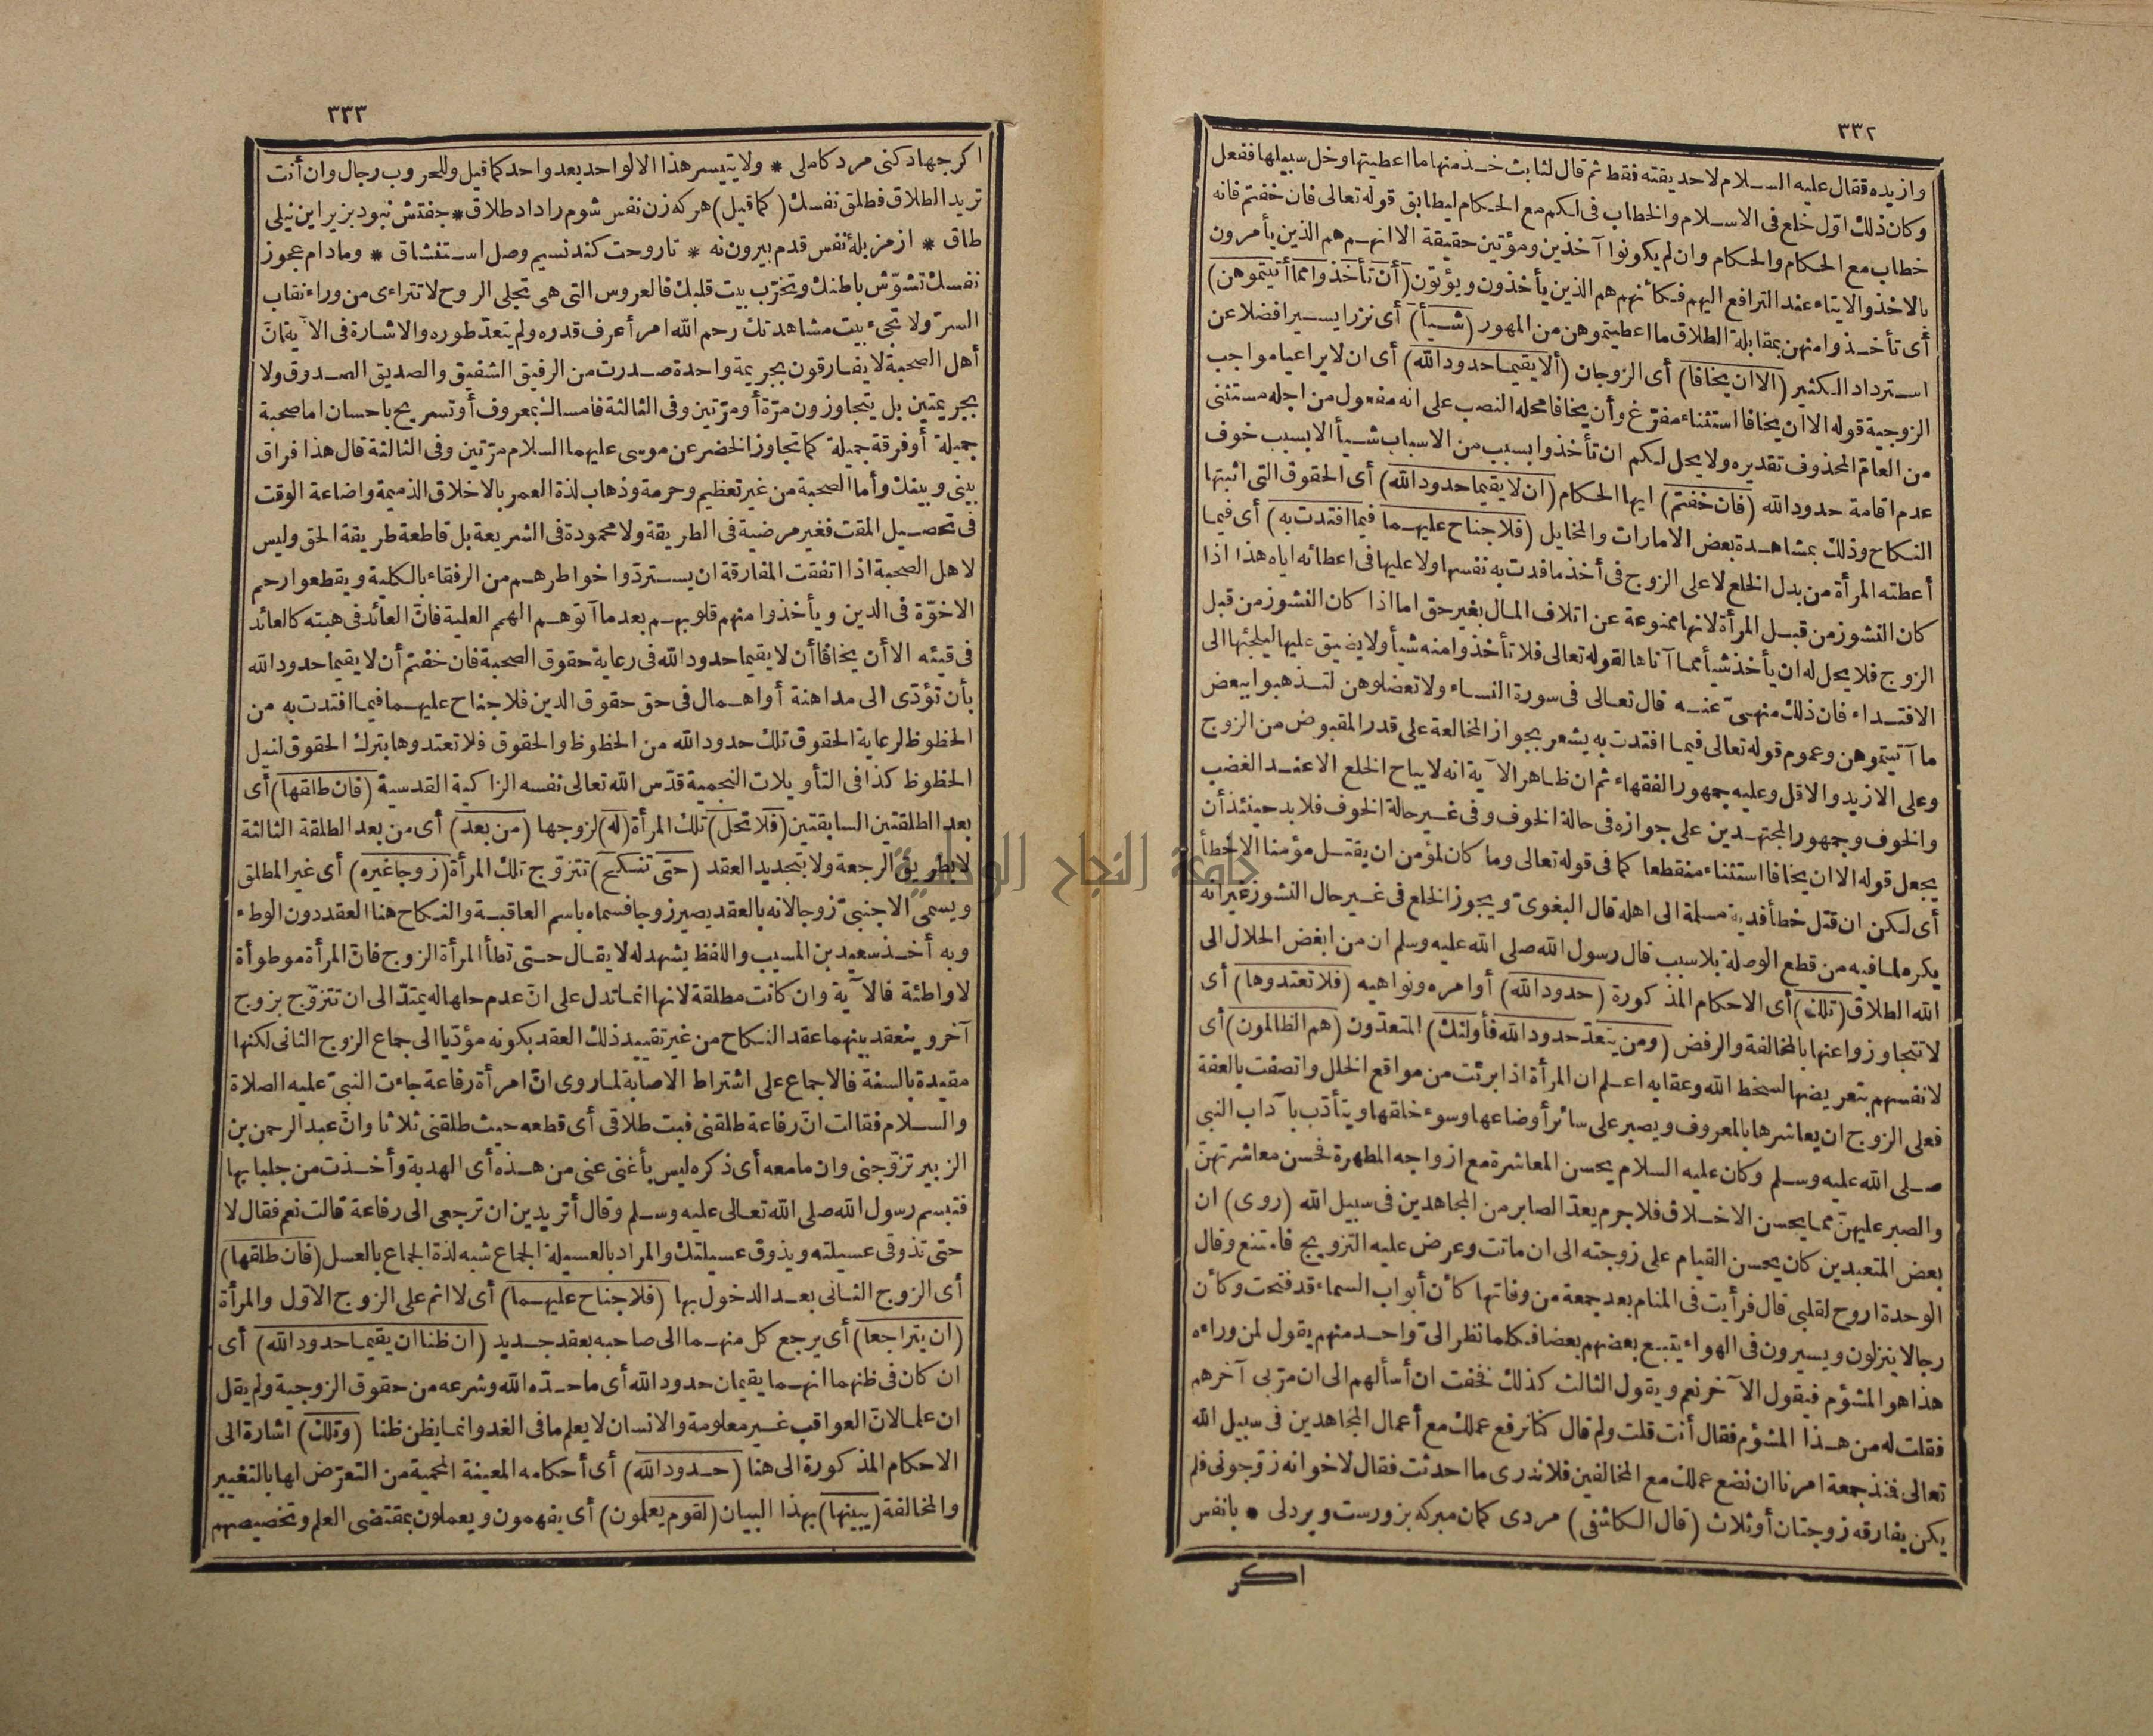 ٣٣٢
وازيده فقال عليه السلام لا حديقته فقط ثم قال لثابت خذ منها ما اعطيتها وخل سبيلها ففعل
وكان ذلك اول خلع فى الاسلام والخطاب فى لكم مع الحكام ليطابق قوله تعالى فان خفتم فانه
خطاب مع الحكام والحكام وان لم يكونوا آخذين ومؤتين حقيقة الا انهم هم الذين يأمرون
بالاخذ والايتاء عند الترافع اليهم فكأنهم هم الذين يأخذون ويؤتون (أن تأخذوا مما أتيتموهن)
أى تأخذوا منهن بمقابلة الطلاق ما اعطيتموهن من المهور (شيأ) أى نزرا يسيرا فضلا عن
استرداد الكثير (الا ان يخافا) أى الزوجان (ألا يقيما حدود الله) أى ان لا يراعيا مواجب
الزوجية قوله الا ان يخافا استثناء مفرّغ وأن يخافا محله النصب على انه مفعول من اجله مستثنى
من العامّ المحذوف تقديره ولا يحل لكم ان تأخذوا بسبب من الاسباب شيأ الا بسبب خوف
عدم اقامة حدود الله (فان خفتم) ايها الحكام (ان لا يقيما حدود الله) أى الحقوق التى اثبتها
النكاح وذلك بمشاهدة بعض الامارات والمخايل (فلا جناح عليهما فيما افتدت به) أى فيما
أعطته المرأة من بدل الخلع لا على الزوج فى أخذ ما فدت به نفسها ولا عليها فى اعطائه اياه هذا اذا
كان النشوز من قبل المرأة لانها ممنوعة عن اتلاف المال بغير حق اما اذا كان النشوز من قبل
الزوج فلا يحل له ان يأخذ شيأ مما آتاها لقوله تعالى فلا تأخذوا منه شيأ ولا يضيق عليها ليلجئها الى
الافتداء فان ذلك منهىّ عنه قال تعالى فى سورة النساء ولا تعضلوهن لتذهبوا ببعض
ما آتيتموهن وعموم قوله تعالى فيما افتدت به يشعر بجواز المخالعة على قدر المقبوض من الزوج
وعلى الازيد والاقل وعليه جمهور الفقهاء ثم ان ظاهر الآية انه لا يباح الخلع الا عند الغضب
والخوف وجمهور المجتهدين على جوازه فى حالة الخوف وفى غير حالة الخوف فلا بد حينئذ أن
يجعل قوله الا ان يخافا استثناء منقطعا كما فى قوله تعالى وما كان لمؤمن ان يقتل مؤمنا الا خطأ
أى لكن ان قتل خطأ فدية مسلمة الى اهله قال البغوىّ ويجوز الخلع فى غير حال النشوز غير انه
يكره لما فيه من قطع الوصلة بلا سبب قال رسول الله صلى الله عليه وسلم ان من ابغض الحلال الى
الله الطلاق (تلك) أى الاحكام المذكورة (حدود الله) أوامره ونواهيه (فلا تعتدوها) أى
لا تتجاوزوا عنها بالمخالفة والرفض (ومن يتعدّ حدود الله فأولئك) المتعدّون (هم الظالمون) أى
لانفسهم بتعريضها لسخط الله وعقابه اعلم ان المرأة اذا برئت من مواقع الخلل واتصفت بالعفة
فعلى الزوج ان يعاشرها بالمعروف ويصبر على سائر أوضاعها وسوء خلقها ويتأدّب بآداب النبى
صلى الله عليه وسلم وكان عليه السلام يحسن المعاشرة مع ازواجه المطهرة فحسن معاشرتهنّ
والصبر عليهنّ مما يحسن الاخلاق فلا جرم يعدّ الصابر من المجاهدين فى سبيل الله (روى) ان
بعض المتعبدين كان يحسن القيام على زوجته الى ان ماتت وعرض عليه التزويج فامتنع وقال
الوحدة اروح لقلبى قال فرأيت فى المنام بعد جمعة من وفاتها كأن أبواب السماء قد فتحت وكأن
رجالا ينزلون ويسيرون فى الهواء يتبع بعضهم بعضا فكلما نظر الىّ واحد منهم يقول لمن وراءه
هذا هو المشؤم فيقول الآخر نعم ويقول الثالث كذلك فخفت ان أسألهم الى ان مرّ بى آخرهم
فقلت له من هذا المشؤم فقال أنت قلت ولم قال كنا نرفع عملك مع أعمال المجاهدين فى سبيل الله
تعالى فمنذ جمعة امرنا ان نضع عملك مع المخالفين فلا ندرى ما احدثت فقال لاخوانه زوّجونى فلم
يكن يفارقه زوجتان أو ثلاث (قال الكاشفى) مردى كمان مبركه بزورست وپردلى * بانفس
اكر
٣٣٣
اكر جهاد كنى مرد كاملى * ولا يتيسر هذا الا لواحد بعد واحد كما قيل وللحروب رجال وان أنت
تريد الطلاق فطلق نفسك (كما قيل) هر كه زن نفس شوم را داد طلاق * جفتش نبود بزير اين نيلى
طاق * از مزبلهٔ نفس قدم بيرون نه * تا روحت كند نسيم وصل استنشاق * وما دام عجوز
نفسك تشوّش باطنك وتخرّب بيت قلبك فالعروس التى هى تجلى الروح لا تتراءى من وراء نقاب
السرّ ولا تجىء بيت مشاهدتك رحم الله امرأ عرف قدره ولم يتعدّ طوره والاشارة فى الآية انّ
أهل الصحبة لا يفارقون بجريمة واحدة صدرت من الرفيق الشفيق والصديق الصدوق ولا
بجريمتين بل يتجاوزون مرّة أو مرّتين وفى الثالثة فامساك بمعروف أو تسريح باحسان اما صحبة
جميلة أو فرقة جميلة كما تجاوز الخضر عن موسى عليهما السلام مرّتين وفى الثالثة قال هذا فراق
بينى وبينك وأما الصحبة من غير تعظيم وحرمة وذهاب لذة العمر بالاخلاق الذميمة واضاعة الوقت
فى تحصيل المقت فغير مرضية فى الطريقة ولا محمودة فى الشريعة بل قاطعة طريقة الحق وليس
لاهل الصحبة اذا اتفقت المفارقة ان يستردّوا خواطرهم من الرفقاء بالكلية ويقطعوا رحم
الاخوّة فى الدين ويأخذوا منهم قلوبهم بعد ما آتوهم الهمم العلية فانّ العائد فى هبته كالعائد
فى قيئه الا أن يخافا أن لا يقيما حدود الله فى رعاية حقوق الصحبة فان خفتم أن لا يقيما حدود الله
بأن تؤدّى الى مداهنة أو اهمال فى حق حقوق الدين فلا جناح عليهما فيما افتدت به من
الحظوظ لرعاية الحقوق تلك حدود الله من الحظوظ والحقوق فلا تعتدوها بترك الحقوق لنيل
الحظوظ كذا فى التأويلات النجمية قدّس الله تعالى نفسه الزاكية القدسية (فان طلقها) أى
بعد الطلقتين السابقتين (فلا تحل) تلك المرأة (له) لزوجها (من بعد) أى من بعد الطلقة الثالثة
لا بطريق الرجعة ولا بتجديد العقد (حتى تنكح) تتزوّج تلك المرأة (زوجا غيره) أى غير المطلق
ويسمى الاجنبىّ زوجا لانه بالعقد يصير زوجا فسماه باسم العاقبة والنكاح هنا العقد دون الوطء
وبه أخذ سعيد بن المسيب واللفظ يشهد له لا يقال حتى تطأ المرأة الزوج فانّ المرأة موطوأة
لا واطئة فالآية وان كانت مطلقة لانها انما تدل على انّ عدم حلها له يمتدّ الى ان تتزوّج بزوج
آخر وينعقد بينهما عقد النكاح من غير تقييد ذلك العقد بكونه مؤدّيا الى جماع الزوج الثانى لكنها
مقيدة بالسنة فالاجماع على اشتراط الاصابة لما روى انّ امرأة رفاعة جاءت النبىّ عليه الصلاة
والسلام فقالت انّ رفاعة طلقنى فبت طلاقى أى قطعه حيث طلقنى ثلاثا وانّ عبد الرحمن بن
الزبير تزوّجنى وان ما معه أى ذكره ليس بأغنى عنى من هذه أى الهدبة وأخذت من جلبابها
فتبسم رسول الله صلى الله تعالى عليه وسلم وقال أتريدين ان ترجعى الى رفاعة قالت نعم فقال لا
حتى تذوقى عسيلته ويذوق عسيلتك والمراد بالعسيلة الجماع شبه لذة الجماع بالعسل (فان طلقها)
أى الزوج الثانى بعد الدخول بها (فلا جناح عليهما) أى لا اثم على الزوج الاوّل والمرأة
(ان يتراجعا) أى يرجع كل منهما الى صاحبه بعقد جديد (ان ظنا ان يقيما حدود الله) أى
ان كان فى ظنهما انهما يقيمان حدود الله أى ما حدّه الله وشرعه من حقوق الزوجية ولم يقل
ان علما لانّ العواقب غير معلومة والانسان لا يعلم ما فى الغد وانما يظن ظنا (وتلك) اشارة الى
الاحكام المذكورة الى هنا (حدود الله) أى أحكامه المعينة المحمية من التعرّض لها بالتغيير
والمخالفة (يبينها) بهذا البيان (لقوم يعلمون) أى يفهمون ويعملون بمقتضى العلم وتخصيصهم
جامعة النجاح الوطنية